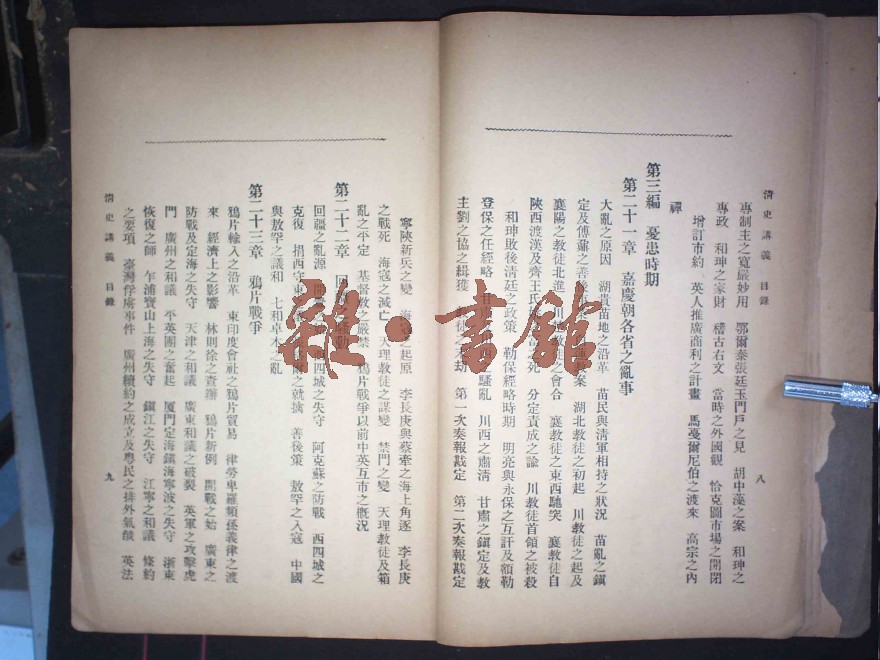 清史講義 目錄
八
專制主之寬嚴妙用 鄂爾泰張廷玉門戶之見 胡中藻之案 和珅之
專政 和珅之家財 稽古右文 當時之外國觀 恰克圖市場之開閉
增訂市約 英人推廣商利之計畫 馬戞爾尼伯之渡來 高宗之內
禪
第三編 憂患時期
第二十一章 嘉慶朝各省之亂事
大亂之原因 湖貴苗地之沿革 苗民與清軍相持之狀況 苗亂之鎭
定及傅鼐之善後 教案 湖北教徒之初起 川教徒之起及
襄陽之教徒北進 川 教徒之會合 襄教徒之東西馳突 襄教徒自
陝西渡漢及齊王氏 之死 分定責成之諭 川教徒首領之被殺
和珅敗後清廷之政策 勒保經略時期 明亮與永保之互訐及額勒
登保之任經略 甘肅 騷亂 川西之肅清 甘肅之鎭定及教
主劉之協之緝獲 教徒之末劫 第一次奏報戡定 第二次奏報戡定
寧陝新兵之變 海寇之起原 李長庚與蔡牽之海上角逐 李長庚
之戰死 海寇之滅亡 天理教徒之謀變 禁門之變 天理教徒及箱
亂之平定 基督教之嚴禁 鴉片戰爭以前中英互市之概況
第二十二章 回疆之騷動
回疆之亂源 西四城之失守 阿克蘇之防戰 西四城之
克復 捐西守東 之就擒 善後策 敖罕之入寇 中國
與敖罕之議和 七和卓木之亂
第二十三章 鴉片戰爭
鴉片輸入之沿革 東印度會社之鴉片貿易 律勞卑羅頻孫義律之渡
來 經濟上之影響 林則徐之查辦 鴉片新例 開戰之始 廣東之
防戰及定海之失守 天津之和議 廣東和議之破裂 英軍之攻擊虎
門 廣州之和議 平英團之奮起 厦門定海鎭海寧波之失守 浙東
恢復之師 乍浦寶山上海之失守 鎭江之失守 江寧之和議 條約
之要項 臺灣俘虜事件 廣州續約之成立及粵民之排外氣燄 英法
清史講義 目錄
九
雜·書館